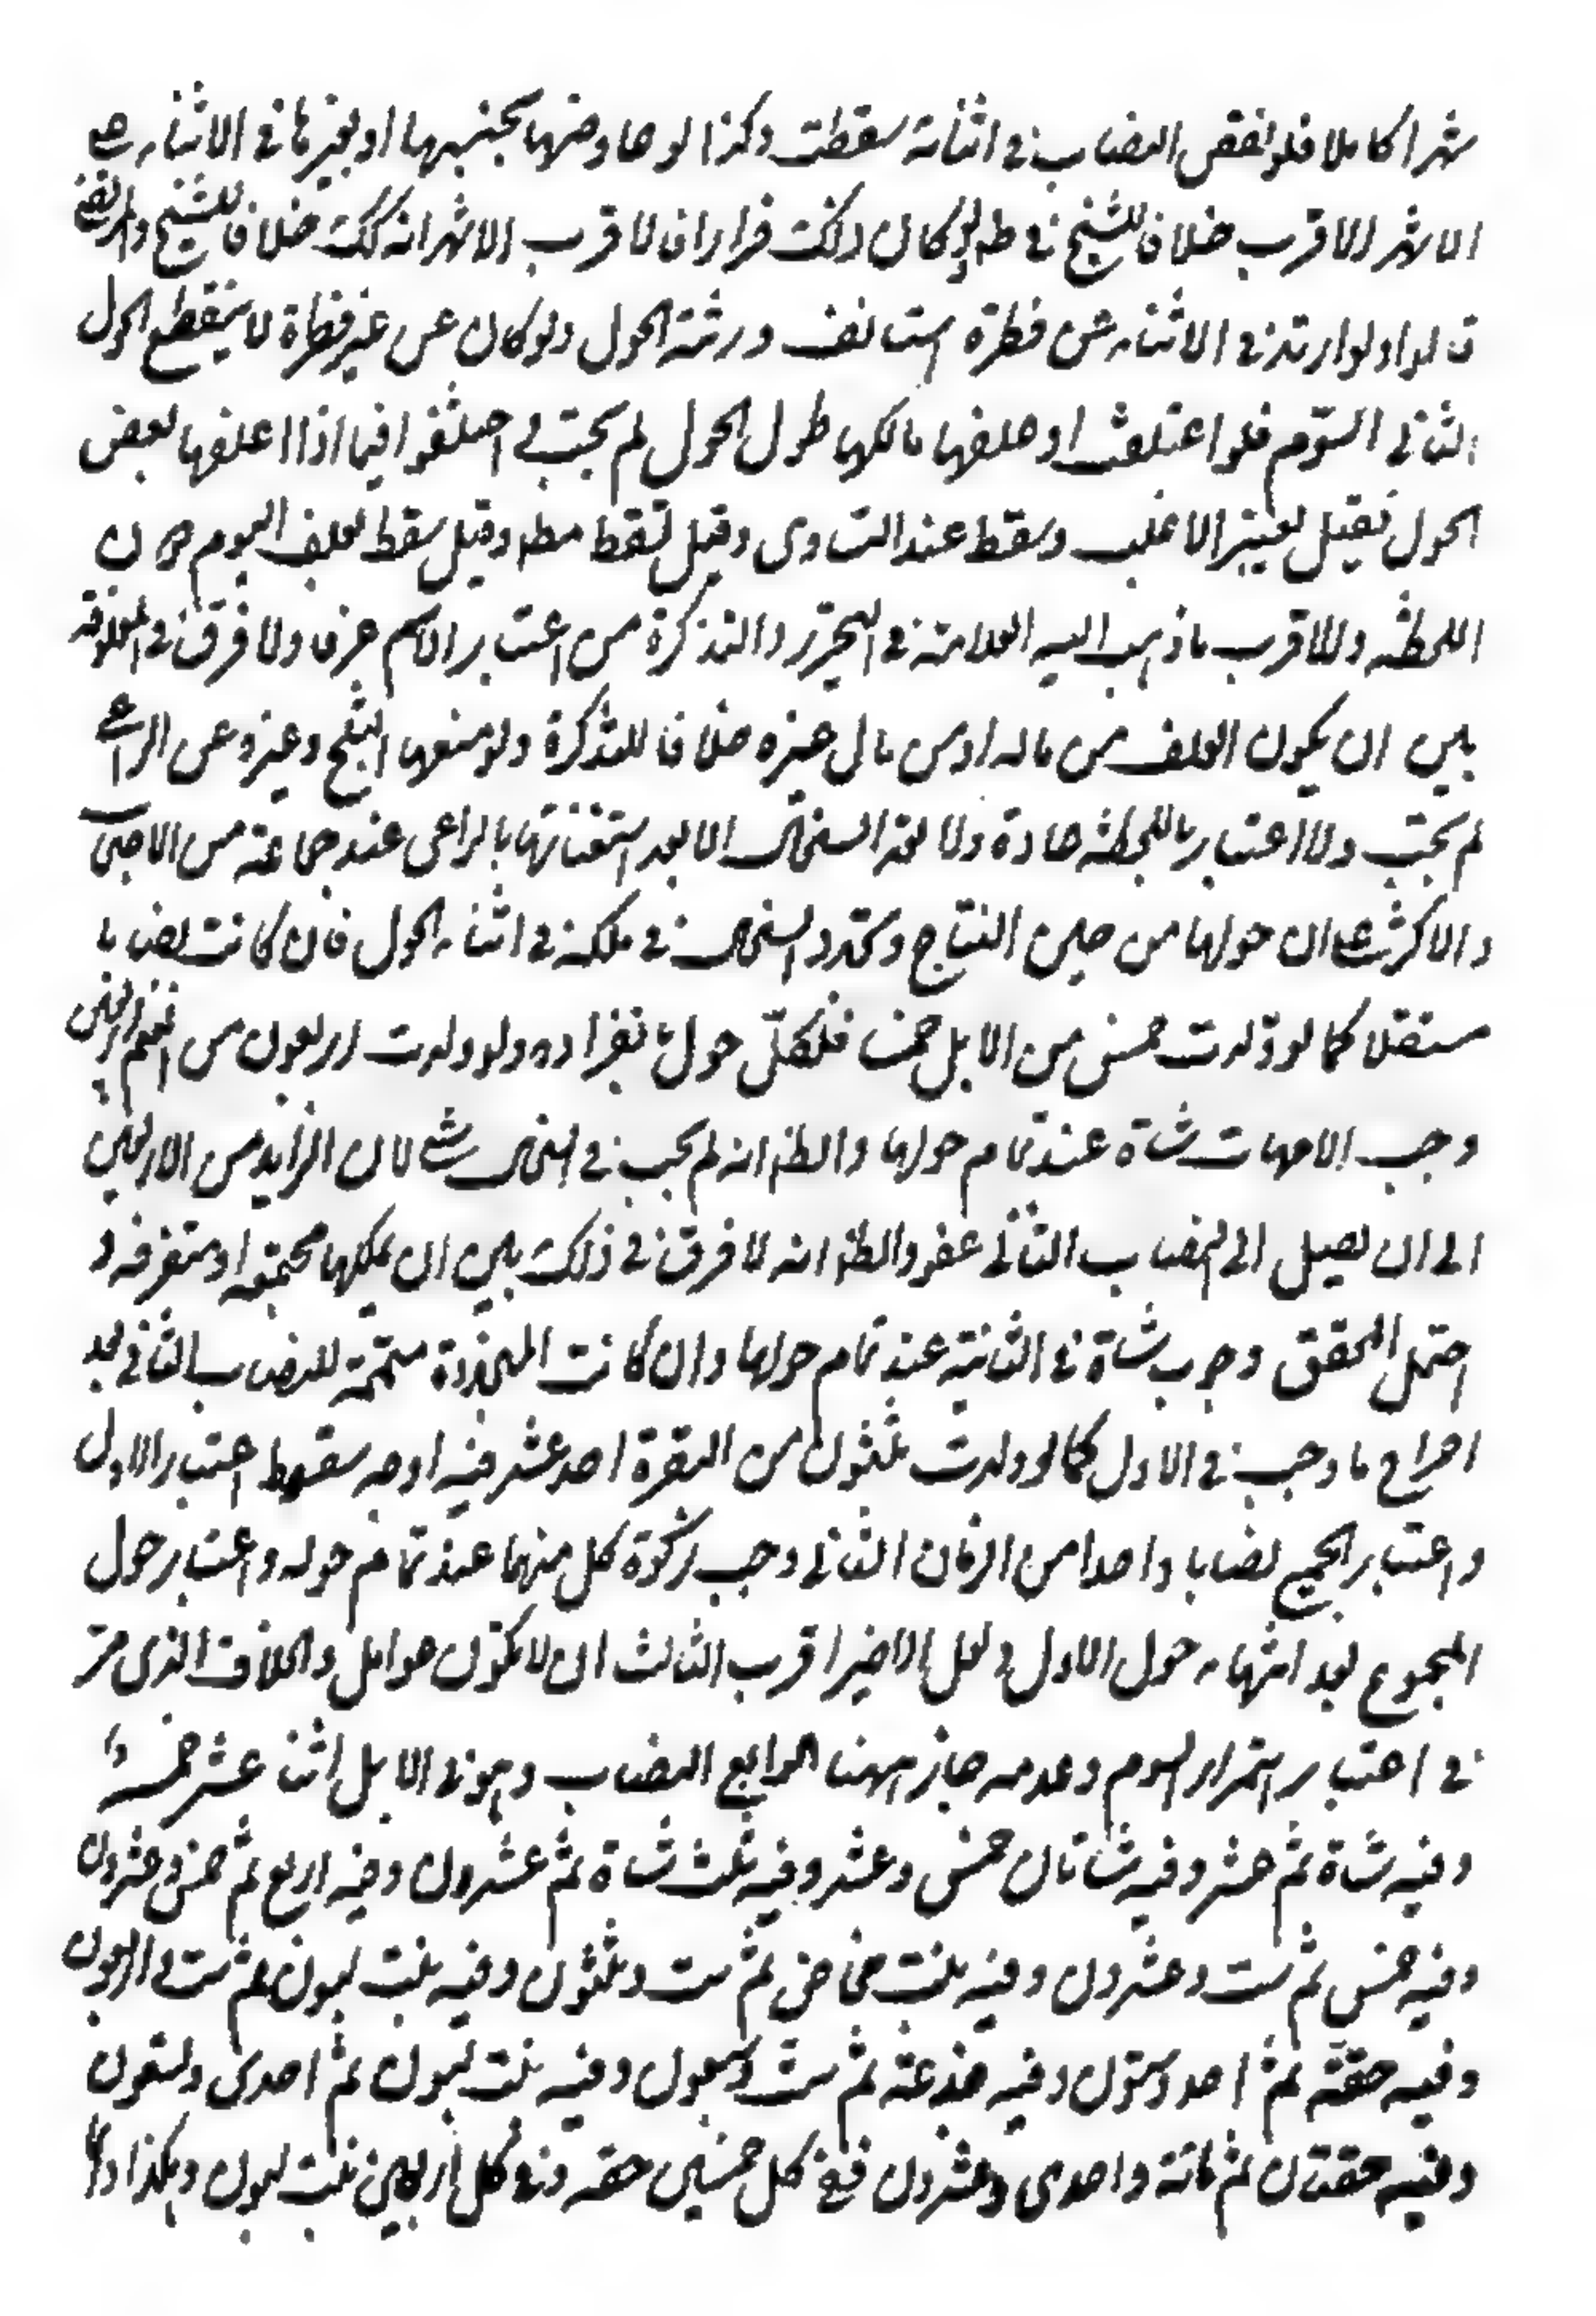 شهرا كاملا فلو نقص النصاب في اثنائه سقطت وكذا لو عاوضها بجنسها او بغيرها في الاثناء على
الاشهر الاقرب خلافا للشيخ في ط ولو كان ذلك فرارا فالاقرب الاشهر انه كك خلافا للشيخ والمرتضى
قالوا ولو ارتد في الاثناء عن فطرة استانف ورثته الحول ولو كان عن غير فطرة لا ينقطع الحول
الثاني السوم فلو اعتلفت او علفها مالكها طول الحول لم يجب في اختلفوا فيما اذا اعلفها بعض
الحول فقيل يعتبر الاغلب وسقط عند التساوى وقيل تسقط مطه وقيل سقط بعلف اليوم دون
اللحظه والاقرب ما ذهب اليه العلامة في التحرير والتذكرة من اعتبار الاسم عرفا ولا فرق في العلوفه
بين ان يكون العلف من ماله او من مال غيره خلافا للتذكرة ولو منعها الثلج وغيره عن الراعى
لم يجب ولا اعتبار باللحظه عادة ولا تعد السخال الا بعد استغنائها بالراعى عند جماعة من الاصحاب
والاكثر على ان حولها من حين النتاج ولو تجدد السخال في ملكه في اثناء الحول فان كانت نصابا
مستقلا كما لو ولدت خمس من الابل خمسا فلكل حول بانفراده ولو ولدت اربعون من الغنم اربعين
وجب الامهات شاة عند تمام حولها والظ انه لم يجب في السخال شئ لان الزايد من الاربعين
الى ان يصيل الى النصاب الثاني عفو والظ انه لا فرق في ذلك بين ان يملكها مجتمعه او متفرقه و
احتمل المحقق وجوب شاة في الثانية عند تمام حولها وان كانت المتجددة متممة للنصاب الثاني بعد
اخراج ما وجب في الاول كما لو ولدت ثلثون من البقرة احد عشر فيه اوجه سقوط اعتبار الاول
واعتبار الجميع نصابا واحدا من الزمان الثاني وجب زكوة كل منهما عند تمام حوله واعتبار حول
المجموع بعد انتهاء حول الاول ولعل الاخير اقرب الثالث ان لا يكون عوامل والخلاف الذى مر
في اعتبار استمرار السوم وعدمه جاز ههنا الرابع النصاب وهو في الابل اثنا عشر خمسة
وفيه شاة ثم عشر وفيه شاتان خمس وعشر وفيه ثلث شاة ثم عشرون وفيه اربع ثم خمس وعشرون
وفيه خمس ثم ست وعشرون وفيه بنت مخاض ثم ست وثلثون وفيه بنت لبون ثم ست واربعون
وفيه حقة ثم احد وستون وفيه جذعة ثم ست وسبعون وفيه بنت لبون ثم احدى وتسعون
وفيه حقتان ثم مائة واحدى وعشرون ففي كل خمسين حقه وفي كل اربعين بنت لبون وهكذا دائما